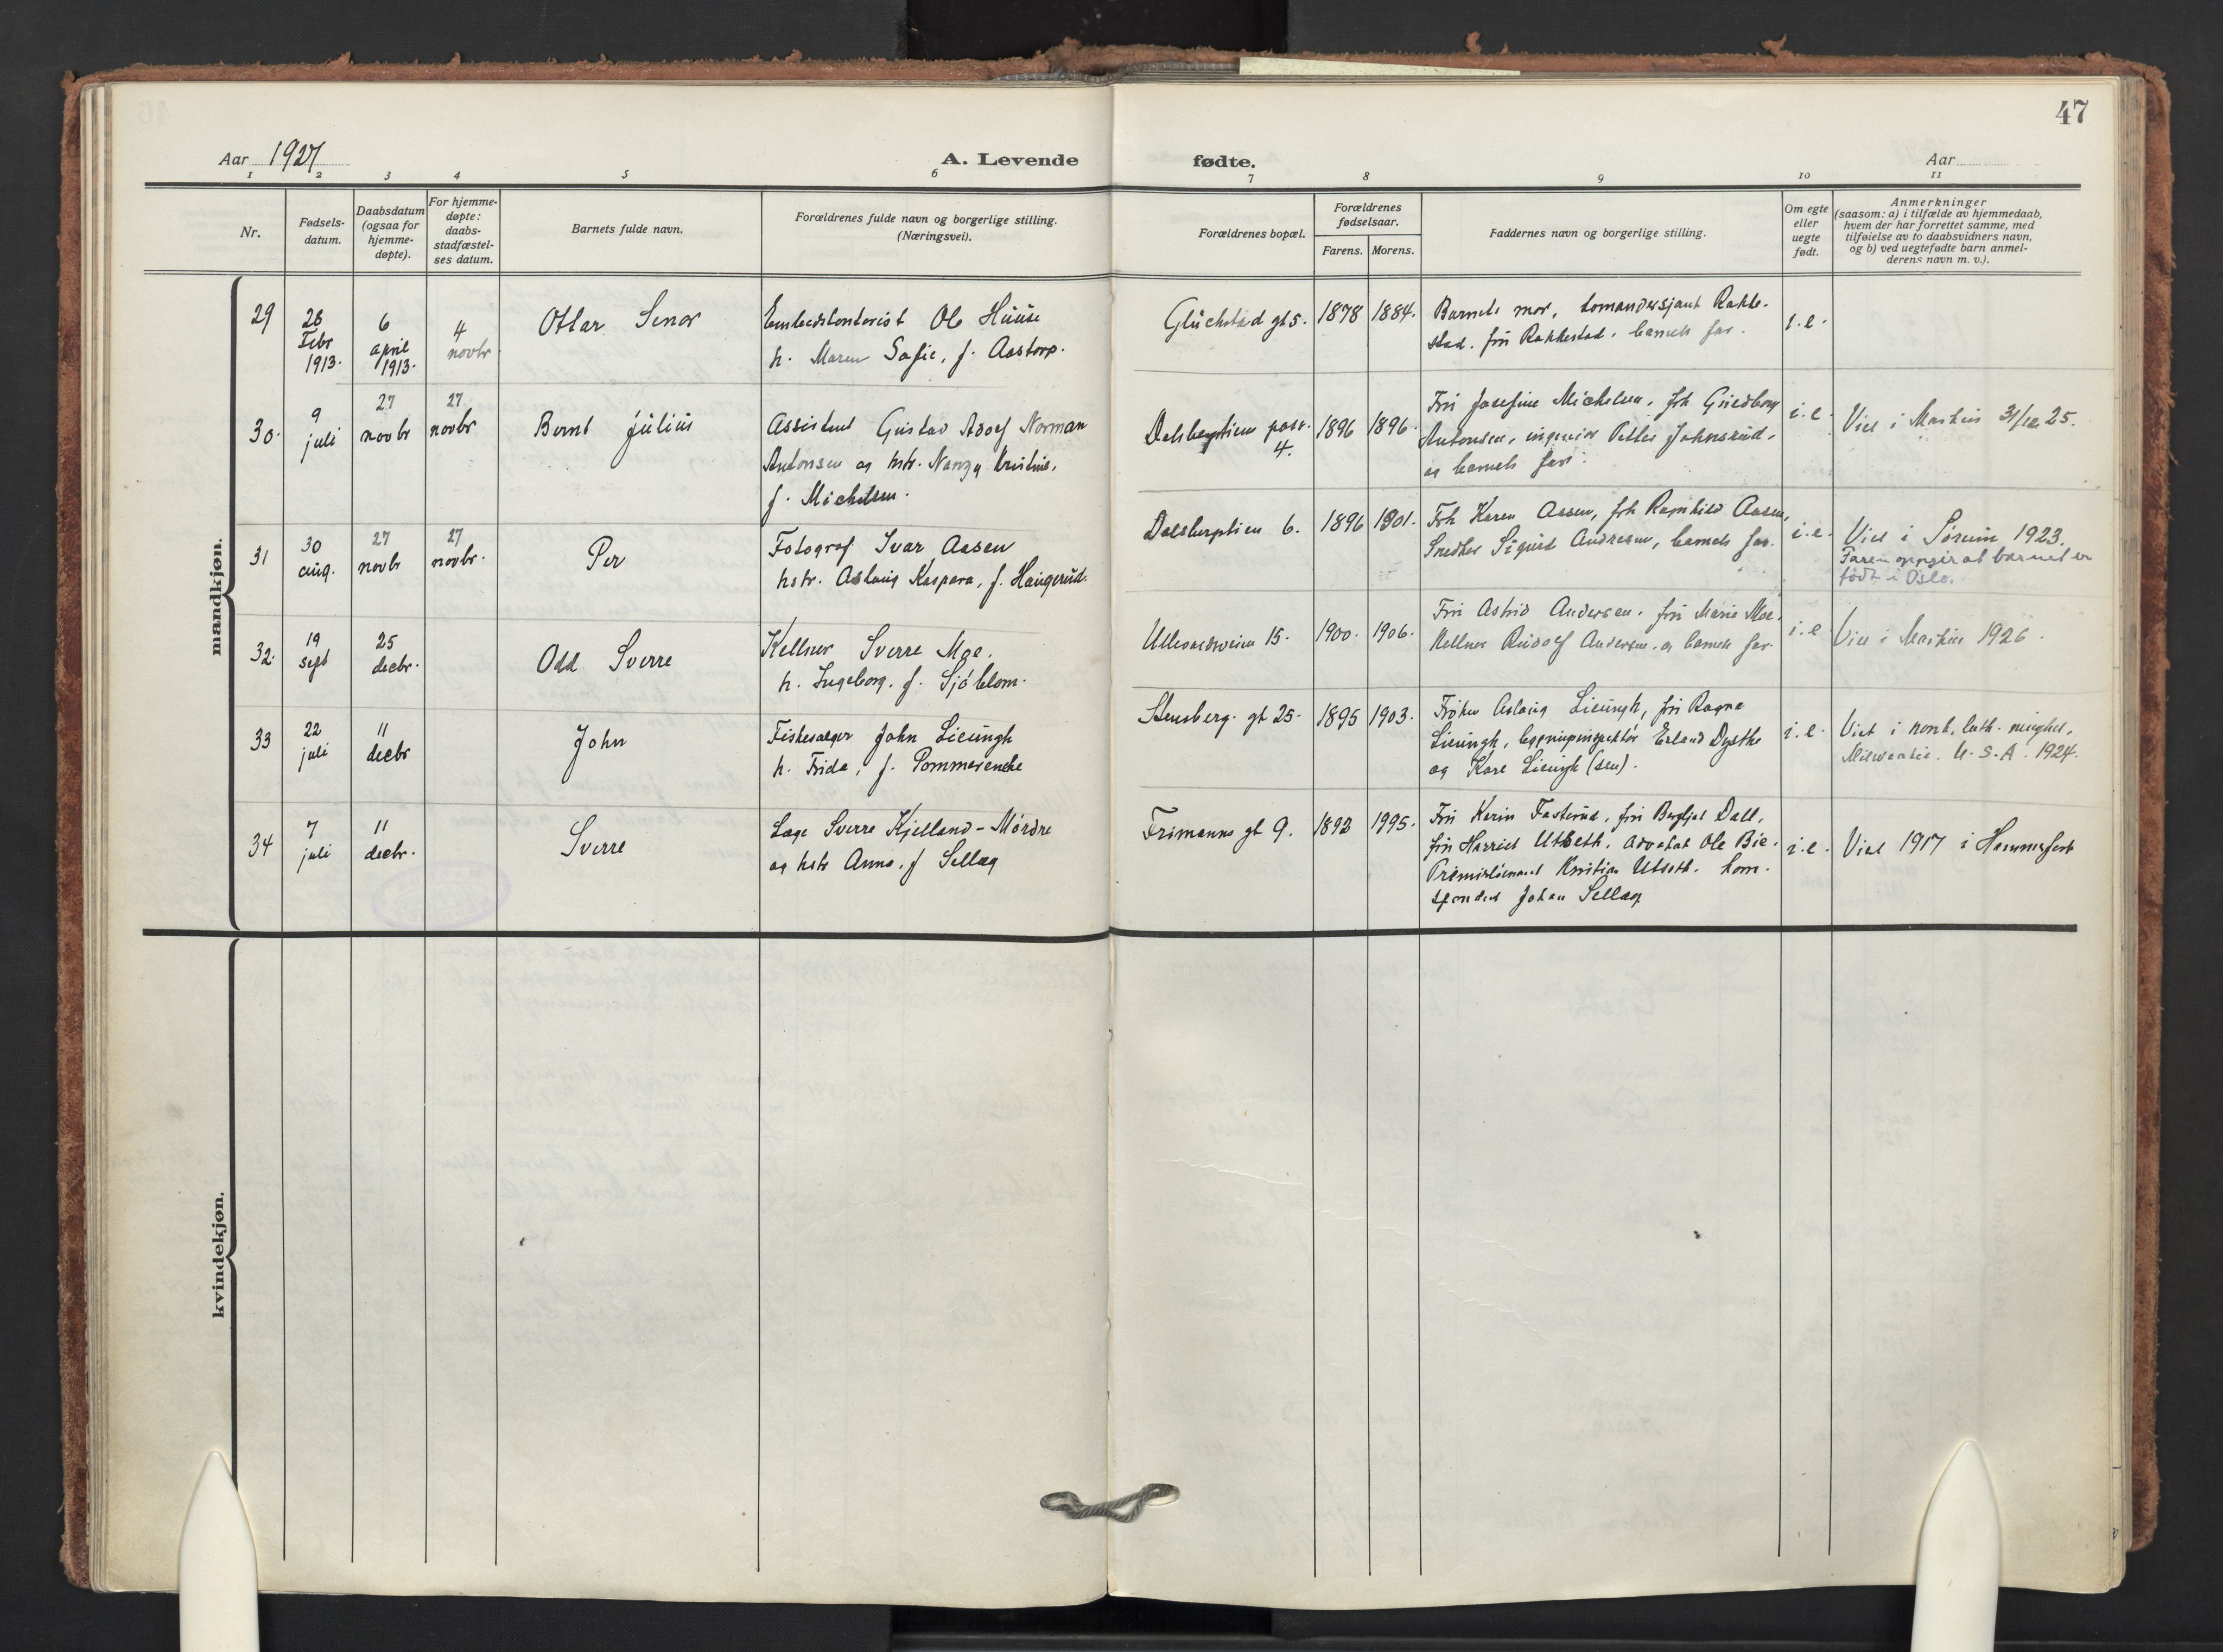 47
Aar 1927
A. Levende fødte.
Aar
1 2 3 4 5 6 7 8 9 10 11
Nr.
Fødsels-
datum.
Daabsdatum
(ogsaa for
hjemme-
døpte).
For hjemme-
døpte:
daabs-
stadfæstel-
ses datum.
Barnets fulde navn.
Forældrenes fulde navn og borgerlige stilling.
(Næringsvei).
Forældrenes bopæl.
Forældrenes
fødselsaar.
Farens. Morens.
Faddernes navn og borgerlige stilling.
Om egte
eller
uegte
født.
Anmerkninger
(saasom: a) i tilfælde av hjemmedaab,
hvem der har forrettet samme, med
tilføielse av to daabsvidners navn,
og b) ved uegtefødte barn anmel-
derens navn m. v.).
mandkjøn.
29
26
Febr
1913.
6
april
1913.
4
novbr
Ottar
Ole Huuse
h. Maren Sofie, f. Aastorp.
Glückstad gt 5.
1878 1884.
Barnets mor, Rakke-
stad. fru Rakkestad. barnets far.
i.e.
30.
9
juli
27
novbr
27
novbr
Bernt Julius
Assistent Gustav Adolf Norman
Antonsen og hstr. Kristine,
f. Michelsen.
Dalsbergstien
4.
1896 1896.
Fru Josefine Michelsen, frk
Antonsen, ingeniør Petter Johnsrud,
og barnets far.
i.e.
Viet i 31/12 25.
31
30
aug.
27
novbr
27
novbr.
Per
Fotograf Ivar Aasen
hstr. Aslaug Kaspara, f. Haugerud.
Dalsbergstien 6.
1896 1901.
Frk Karen Aasen, frk Ragnhild Aasen,
Snedker Sigurd Andresen, barnets far.
i.e.
Viet i Sørum 1923.
Faren oppgir at barnet er
født i Oslo.
32.
19
sept
25
decbr.
Odd Sverre
Kellner Sverre Moe.
h. Ingeborg. f. Sjöblom.
Ullevaalsveien 15.
1900. 1906.
Fru Astrid Andersen. fru Marie Moe.
Kellner Rudolf Andersen. og barnets far.
i.e.
Viet i 1926.
33
22
juli
11
decbr
John
John Lieungh
h. Frida, f. Pommerencke
Stensberg. gt 25.
1895 1903.
Frøken Aslaug Lieungh, fru Ragna
Lieungh, Erland Dysthe
og Kare Lieungh (sen).
i.e.
Viet i norsk. luth. menighet.
Milwaukee. U.S.A. 1924.
34
7
juli
11
decbr.
Sverre
Læge Sverre Kjelland-Mördre
og hstr Anna. f Sellæg
Frimanns gt 9.
1892 1995.
Fru Karin Fasterud, fru Bergljot Dall,
fru Harriet Utseth. advokat Ole Bie.
Premierløitnant Kristian Utseth. kore-
spondent Johan Sellæg
i.e.
Viet 1917 i Hammerfest
kvindekjøn.